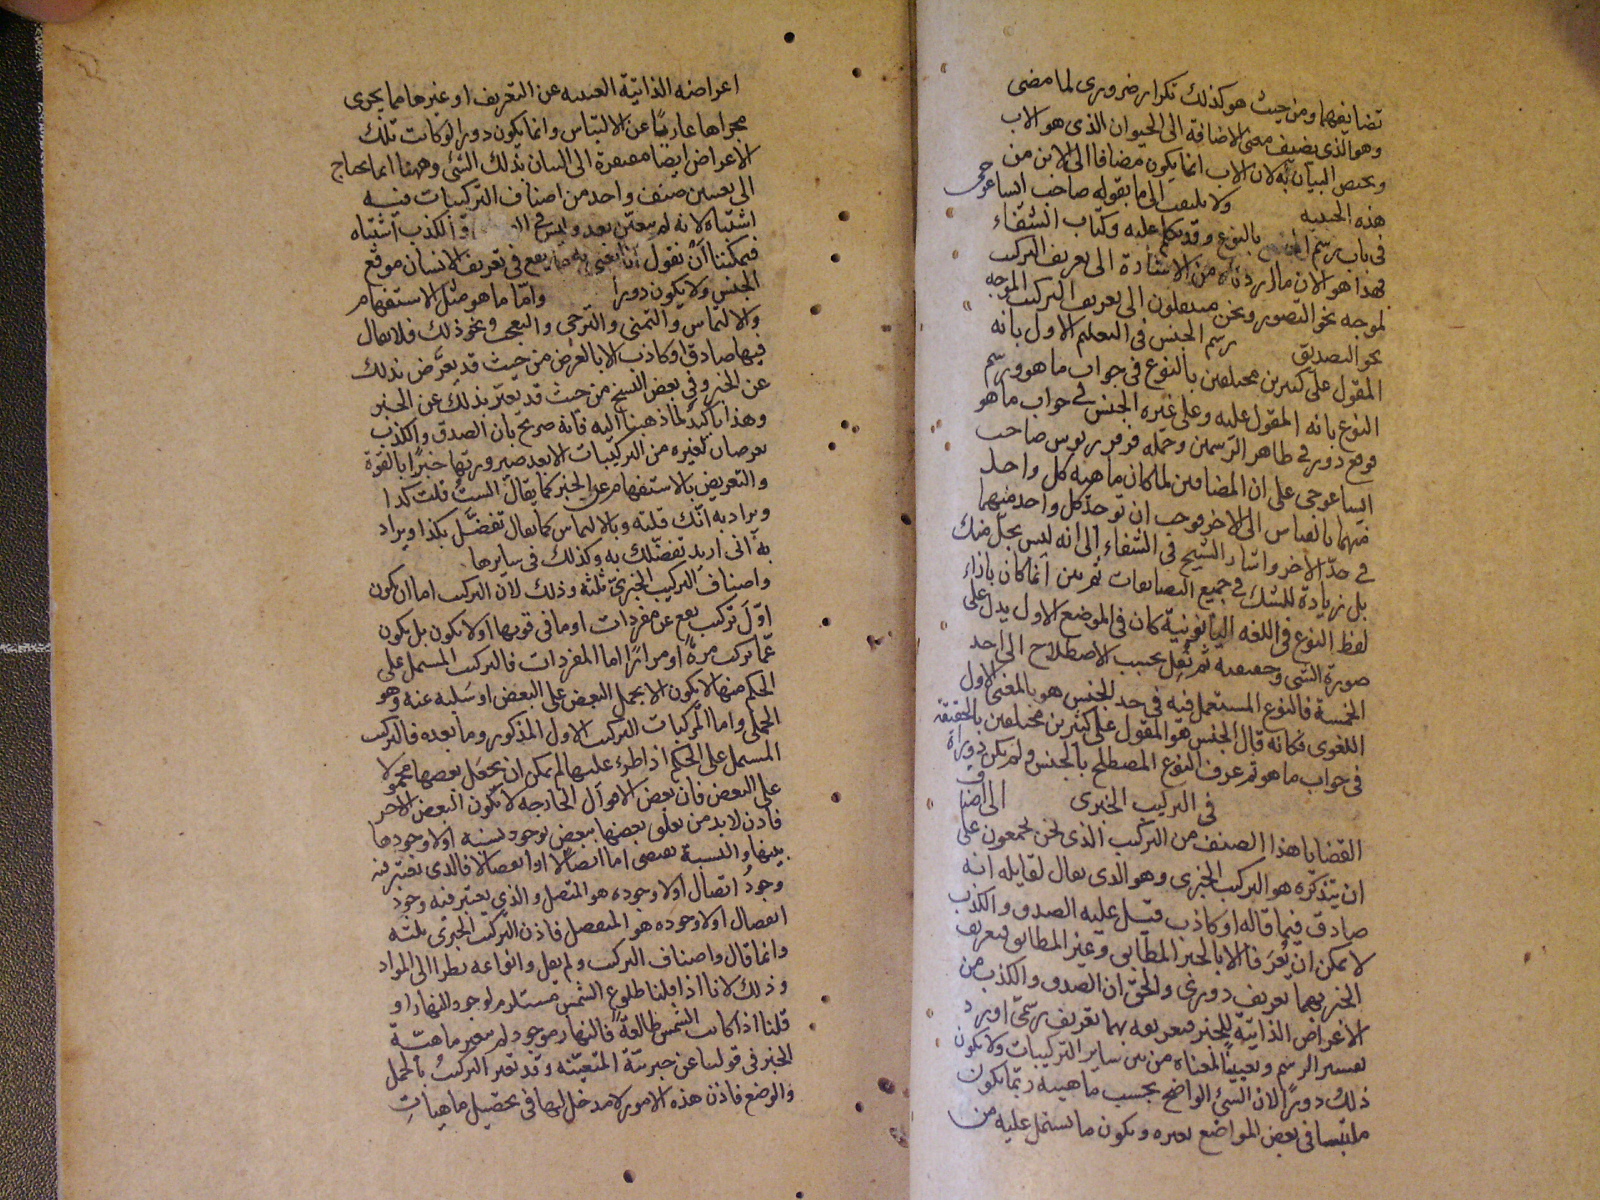 تضايفهما ومن حيث هو كذلك تكرار ضرورى لما مضى
وهو الذى يضيف معنى الاضافة الى الحيوان الذى هو الاب
ويختص البيان به لان الاب انما يكون مضافا الى الابن من
هذه الحيثية ولا يلتفت الى ما يقوله صاحب ايساغوجى
فى باب رسم بالنوع وقد تكلم عليه فى كتاب الشفاء
فهذا هو الان ما اردناه من الاشارة الى تعريف التركيب
لموجه نحو التصور ونحن منتقلون الى تعريف التركيب الموجه
نحو التصديق رسم الجنس فى التعليم الاول بانه
المقول على كثيرين مختلفين بالنوع فى جواب ما هو ورسم
النوع بانه المقول عليه وعلى غيره الجنس فى جواب ما هو
فوقع دور فى ظاهر الرسمين وحمله فرفوريوس صاحب
ايساغوجى على ان المضافين لما كان ماهية كل واحد
منهما بالقياس الى الاخر فوجب ان توخذ كل واحد منهما
فى حد الاخر واشار الشيخ فى الشفاء الى انه ليس بحل شك
بل زيادة للشك فى جميع المتضايفات ثم بين انما كان بازاء
لفظ النوع فى اللغه اليونانية كان فى الموضع الاول يدل على
صورة الشى وحقيقته ثم نقل بحسب الاصطلاح الى احد
الخمسة فالنوع المستعمل فيه فى حد الجنس هو بالمعنى الاول
اللغوى فكانه قال الجنس هو المقول على كثيرين مختلفين بالحقيقة
فى جواب ما هو ثم عرف النوع المصطلح بالجنس ولم يكن دورا
فى التركيب الخبرى الى اصناف
القضايا هذا الصنف من التركيب الذى نحن مجمعون على
ان يتذكره هو التركيب الخبرى وهو الذى يقال لقايله انه
صادق فيما قاله او كاذب قيل عليه الصدق والكذب
لا يمكن ان يعرفا الا بالخبر المطابق وغير المطابق فتعريف
الخبر بهما تعريف دورى والحق ان الصدق والكذب من
الاعراض الذاتية للخبر فتعريفه بهما تعريف رسمى اورد
تفسير الرسم وتعيينا لمعناه من بين ساير التركيبات ولا يكون
ذلك دورا لان الشئ الواضح بحسب ماهيته ربما يكون
ملتبسا فى بعض المواضع بغيره ويكون ما يشتمل عليه من
اعراضه الذاتية الغنية عن التعريف او غيرها مما يجرى
مجراها عاريا عن الالتباس وانما يكون دورا لو كانت تلك
الاعراض ايضا مفتقرة الى البيان بذلك الشئ وههنا انما يحتاج
الى تعيين صنف واحد من اصناف التركيبات فيه
اشتباه لانه لم يتعين بعد وليس فى الكذب اشتباه
فيمكننا ان نقول انا نعنى به ما يقع فى تعريف الانسان موقع
الجنس ولا يكون دورا واما ما هو مثل الاستفهام
والالتماس والتمنى والترجى والتعجب ونحو ذلك فلا يقال
فيها صادق او كاذب الا بالعرض من حيث قد يعرض بذلك
عن الخبر وفى بعض النسخ من حيث قد يعبر بذلك عن الخبر
وهذا تاكيد لما ذهبنا اليه فانه صريح بان الصدق والكذب
يعرضان لغيره من التركيبات الا بعد صيرورتها خبرا بالقوة
والتعريض بالاستفهام عن الخبر كما يقال الست قلت كذا
ويراد به انك قلته وبالالتماس كما يقال تفضل بكذا ويراد
به انى اريد تفضلك به وكذلك فى سايرها
واصناف التركيب الخبرى ثلثة وذلك لان التركيب اما ان يكون
اول تركيب يقع عن مفردات او ما فى قوتها او لا يكون بل يكون
عما تركب مرة او مرارا اما المفردات فالتركيب المشتمل على
الحكم منها لا يكون الا بحمل البعض على البعض او سلبه عنه وهو
الحملى واما المركبات التركيب الاول المذكور وما بعده فالتركيب
المشتمل على الحكم اذا طرء عليها لم يمكن ان يجعل بعضها محمولا
على البعض فان بعض الاقوال الخارجه لا يكون البعض الاخر
فاذن لا بد من تعلق بعضها ببعض بوجود نسبة او لا وجودها
بينها والنسبة تقتضى اما اتصالا او انفصالا فالذى يعتبر فيه
وجود اتصال او لا وجوده هو المتصل والذى يعتبر فيه وجود
انفصال او لا وجوده هو المنفصل فاذن التركيب الخبرى ثلثه
وانما قال واصناف التركيب ولم يقل وانواعه نظرا الى المواد
وذلك لانا اذا قلنا طلوع الشمس مستلزم لوجود النهار او
قلنا اذا كانت الشمس طالعة فالنهار موجود لم يتغير ماهية
الخبر فى قولنا عن خبريته المتعينة وقد تغير التركيب بالحمل
والوضع فاذن هذه الامور لا مدخل لها فى تحصيل ماهيات